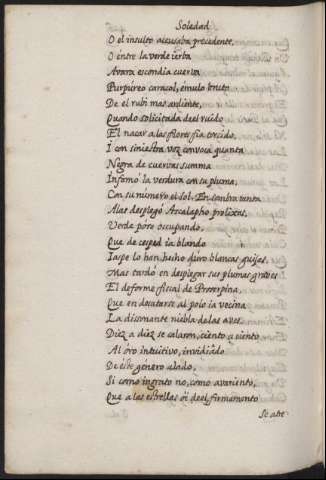 Soledad
O el insulto acusaba precedente,
O entre la verde ierba
Avara escondia cuerva
Purpureo caracol, emulo bruto
De el rubi mas ardiente,
Quando solicitada de el ruido
El nacar a las flores fia torcido,
I con siniestra voz convoca quanta
Negra de cuervas summa
Infamó la verdura con su pluma,
Con su número el sol. En sombra tanta
Alas desplegó Ascalapho prolixas,
Verde poso occupando,
Que de cesped ia blando
Iaspe lo han hecho duro blancas guijas,
Mas tardó en desplegar sus plumas graves
El deforme fiscal de Proserpina,
Que en desatarse al polo ia vecina
La dissonante niebla de las aves.
Diez a diez se calaron, ciento a ciento
Al oro intuitivo, invidiado
De este género alado,
Si como ingrato no, como avariento,
Que a las estrellas oi de el firmamento
Se atre-